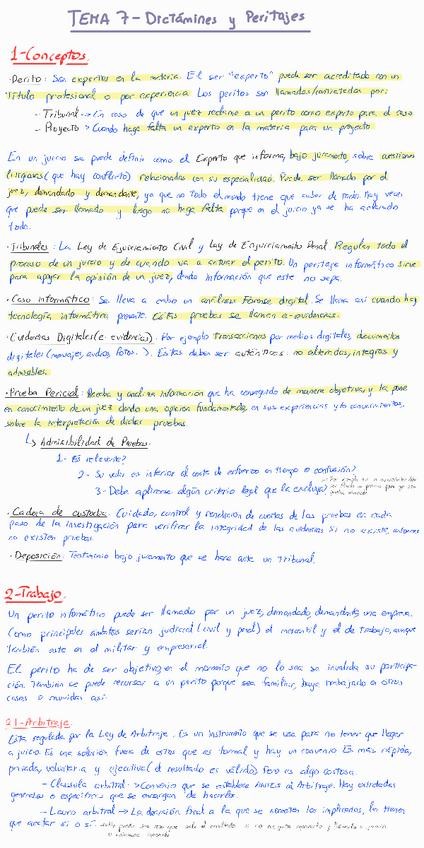 TEMA 7 - Dictámines y Peritajes
1-Conceptos.
·Perito: Son expertos en la materia. El ser "experto" puede ser acreditado con un
Título profesional o por experiencia. Los peritos son llamados/contratados por:
- Tribunal -> En caso de que un juez reclame a un perito como experto para el caso
- Proyecto -> Cuando haga falta un experto en la materia para un proyecto.
En un juicio se puede definir como el Experto que informa, bajo juramento, sobre cuestiones
litigiosas (que hay conflicto) relacionadas con su especialidad. Puede ser llamado por el
juez, demandado y demandante, ya que no todo el mundo tiene que saber de todo. Hay veces
que puede ser llamado y luego no haga falta porque en el juicio ya se ha aclarado
todo.
·Tribunales: La Ley de Enjuiciamiento Civil y Ley de Enjuiciamiento Penal Regulan todo el
proceso de un juicio y de cuando va a actuar el perito. Un peritaje informático sirve
para apoyar la opinión de un juez, dando información que este no sepa.
·Caso informático: Se lleva a cabo un análisis Forense digital. Se lleva así cuando hay
tecnología informática presente. Estas pruebas se llaman e-evidencias.
·Evidencias Digitales (e-evidencias): Por ejemplo transacciones por medios digitales, documentos
digitales (mensajes, audios, fotos..). Estas deben ser auténticas, no alteradas, íntegras y
admisibles.
·Prueba Pericial: Recaba y analiza información que ha conseguido de manera objetiva, y la pone
en conocimiento de un juez dando una opinión fundamentada en sus experiencias y/o conocimientos,
sobre la interpretación de dichas pruebas.
↳ Admisibilidad de Pruebas.
1- Es relevante?
2- Su valor es inferior al coste de esfuerzo en tiempo o confusión?
3- Debe aplicarse algún criterio legal que la excluya?
·Cadena de custodia: Cuidado, control y rendición de cuentas de las pruebas en cada
paso de la investigación para verificar la integridad de las evidencias si no existe, entonces
no existen pruebas.
·Deposición: Testimonio bajo juramento que se hace ante un Tribunal.
2-Trabajo.
Un perito informático puede ser llamado por un juez, demandado, demandante, una empresa.
Como principales ámbitos serían judicial (civil y penal) el mercantil y el de trabajo, aunque
también está en el militar y empresarial.
El perito ha de ser objetivo, en el momento que no lo sea se invalida su participa-
ción. También se puede recusar a un perito porque sea familiar, haya trabajado a otros
casos o movidas así.
2.1-Arbitraje.
Está regulada por la Ley de Arbitraje. Es un instrumento que se usa para no tener que llegar
a juicio. Es una solución fuera de estos que es formal y hay un convenio. Es más rápida,
privada, voluntaria y ejecutiva (el resultado es válido) Pero es algo costosa
- Cláusula arbitral -> Convenio que se establece previo al Arbitraje. Hay entidades
generales o específicas que se encargan de hacerlos.
- Laudo arbitral -> La decisión final a la que se someten los implicados, la tienen
que acatar sí o sí.